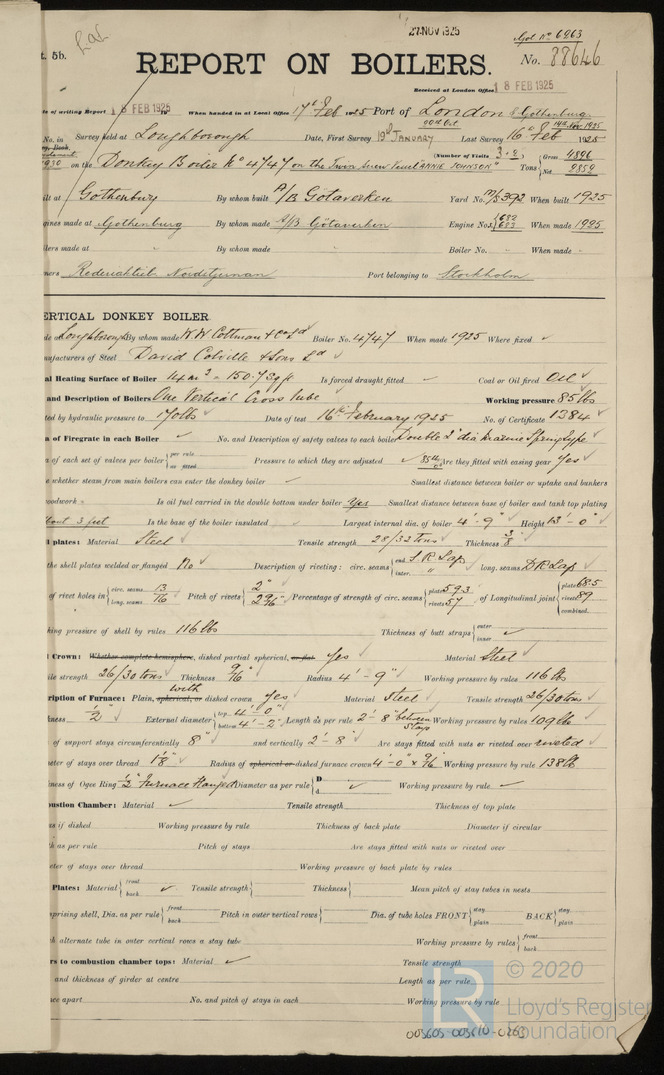 27 NOV 1925
Gol. No 6963
t. 5b.
REPORT ON BOILERS.
No. 88646
Received at London Office 18 FEB 1925
te of writing Report 18 FEB 1925 When handed in at Local Office 17th Feb 1925 Port of London & Gothenburg
No. in Survey held at Loughborough Date, First Survey 19th JANUARY Last Survey 16th Feb 1925
on the Donkey Boiler No 4747 on the Twin Screw Vessel "ANNIE JOHNSON" (Number of Visits 3.2) Tons Gross 4896 Net
ilt at Gothenburg By whom built A/B Götaverken Yard No. 392 When built 1925
gines made at Gothenburg By whom made A/B Götaverken Engine No. 682 683 When made 1925
ilers made at By whom made Boiler No. - When made -
ners Rederiaktieb Nordstjernan Port belonging to Stockholm
ERTICAL DONKEY BOILER.
de at Loughborough By whom made W.W Coltman & Co Ld Boiler No. 4747 When made 1925 Where fixed ✓
nufacturers of Steel David Colville & Sons Ld ✓
al Heating Surface of Boiler 14 m² = 150.7 Sq ft Is forced draught fitted Coal or Oil fired Oil
and Description of Boilers One Vertical Cross tube Working pressure 85 lbs
ted by hydraulic pressure to 170 lbs Date of test 16th February 1925 No. of Certificate 1384
a of Firegrate in each Boiler No. and Description of safety valves to each boiler Double 2" dia Spring type
a of each set of valves per boiler per rule as fitted Pressure to which they are adjusted 85 lb Are they fitted with easing gear Yes
e whether steam from main boilers can enter the donkey boiler Smallest distance between boiler or uptake and bunkers
woodwork Is oil fuel carried in the double bottom under boiler Yes Smallest distance between base of boiler and tank top plating
about 3 feet Is the base of the boiler insulated Largest internal dia. of boiler 4'-9" Height 13'-0"
l plates: Material Steel Tensile strength 28/32 tons Thickness 3/8
the shell plates welded or flanged No Description of riveting: circ. seams end S R Lap inter. " long. seams D R Lap
of rivet holes in circ. seams 13/16 long. seams Pitch of rivets 2" Percentage of strength of circ. seams plate 59.3 rivets 57 of Longitudinal joint plate 68.5 rivets 89 combined.
king pressure of shell by rules 116 lbs Thickness of butt straps outer inner
l Crown: Whether complete hemisphere, dished partial spherical, or flat Yes Material Steel
ile strength 26/30 tons Thickness 9/16 Radius 4'-9" Working pressure by rules 116 lbs
ription of Furnace: Plain, spherical, or dished crown with Yes Material Steel Tensile strength 26/30 tons
kness 1/2" External diameter top 4'-0" bottom 4'-2" Length as per rule 2'-8" between stays Working pressure by rules 109 lbs
of support stays circumferentially 8" and vertically 2'-8" Are stays fitted with nuts or riveted over riveted
meter of stays over thread 1 1/8 Radius of spherical or dished furnace crown 4'-0" x 9/16 Working pressure by rule 138 lb
kness of Ogee Ring 1/2" Furnace Flanged Diameter as per rule D d Working pressure by rule
bustion Chamber: Material Tensile strength Thickness of top plate
us if dished Working pressure by rule Thickness of back plate Diameter if circular
h as per rule Pitch of stays Are stays fitted with nuts or riveted over
eter of stays over thread Working pressure of back plate by rules
Plates: Material front back Tensile strength Thickness Mean pitch of stay tubes in nests
prising shell, Dia. as per rule front back Pitch in outer vertical rows Dia. of tube holes FRONT stay plain BACK stay plain
ch alternate tube in outer vertical rows a stay tube Working pressure by rules front back
rs to combustion chamber tops: Material Tensile strength
and thickness of girder at centre Length as per rule
ce apart No. and pitch of stays in each Working pressure by rule
LR
© 2020
Lloyd's Register
Foundation
003605-003610-0263